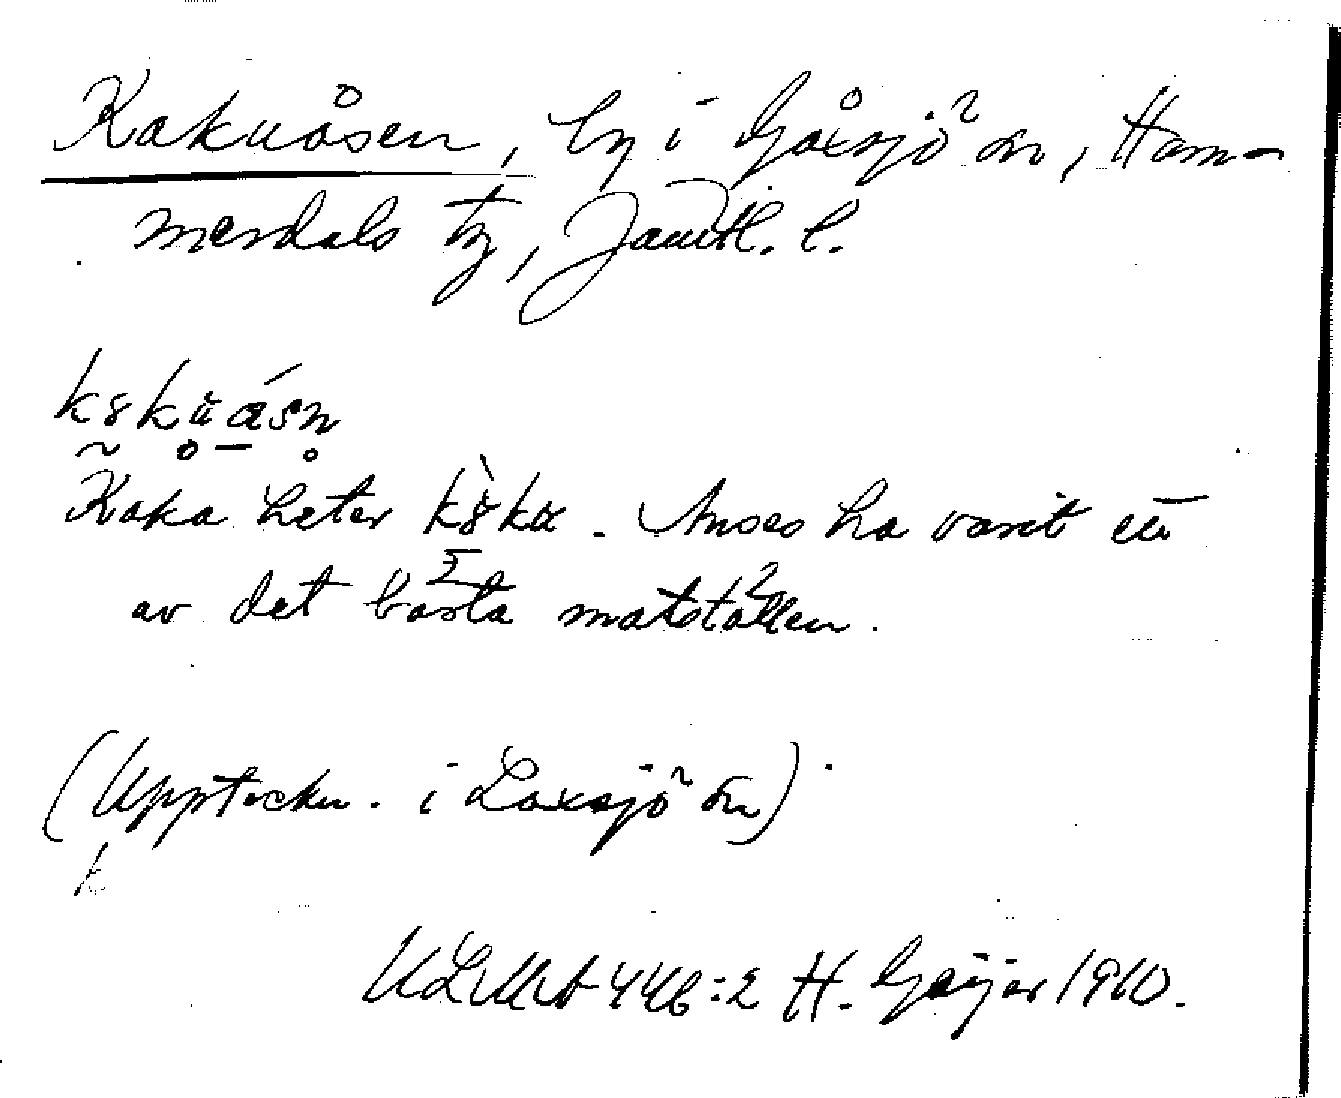 Kakuåsen, by i Gåxsjö sn, Ham-
merdals tg, Jämtl. l.
Kaka heter . Anses ha varit ett
av det bästa matställen.
(Uppteckn. i Laxsjö sn)
k
ULMA 446:2 H. Geijer 1910.